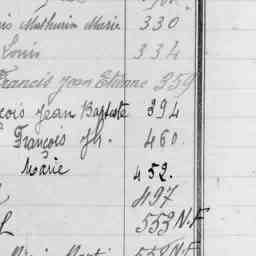 is Mathurin Marie 330
Louis 334
Francis Jean Etienne 359
çois Jean Baptiste 394
François Jh. 460.
Marie 452.
497
553 N.F
558 N.F